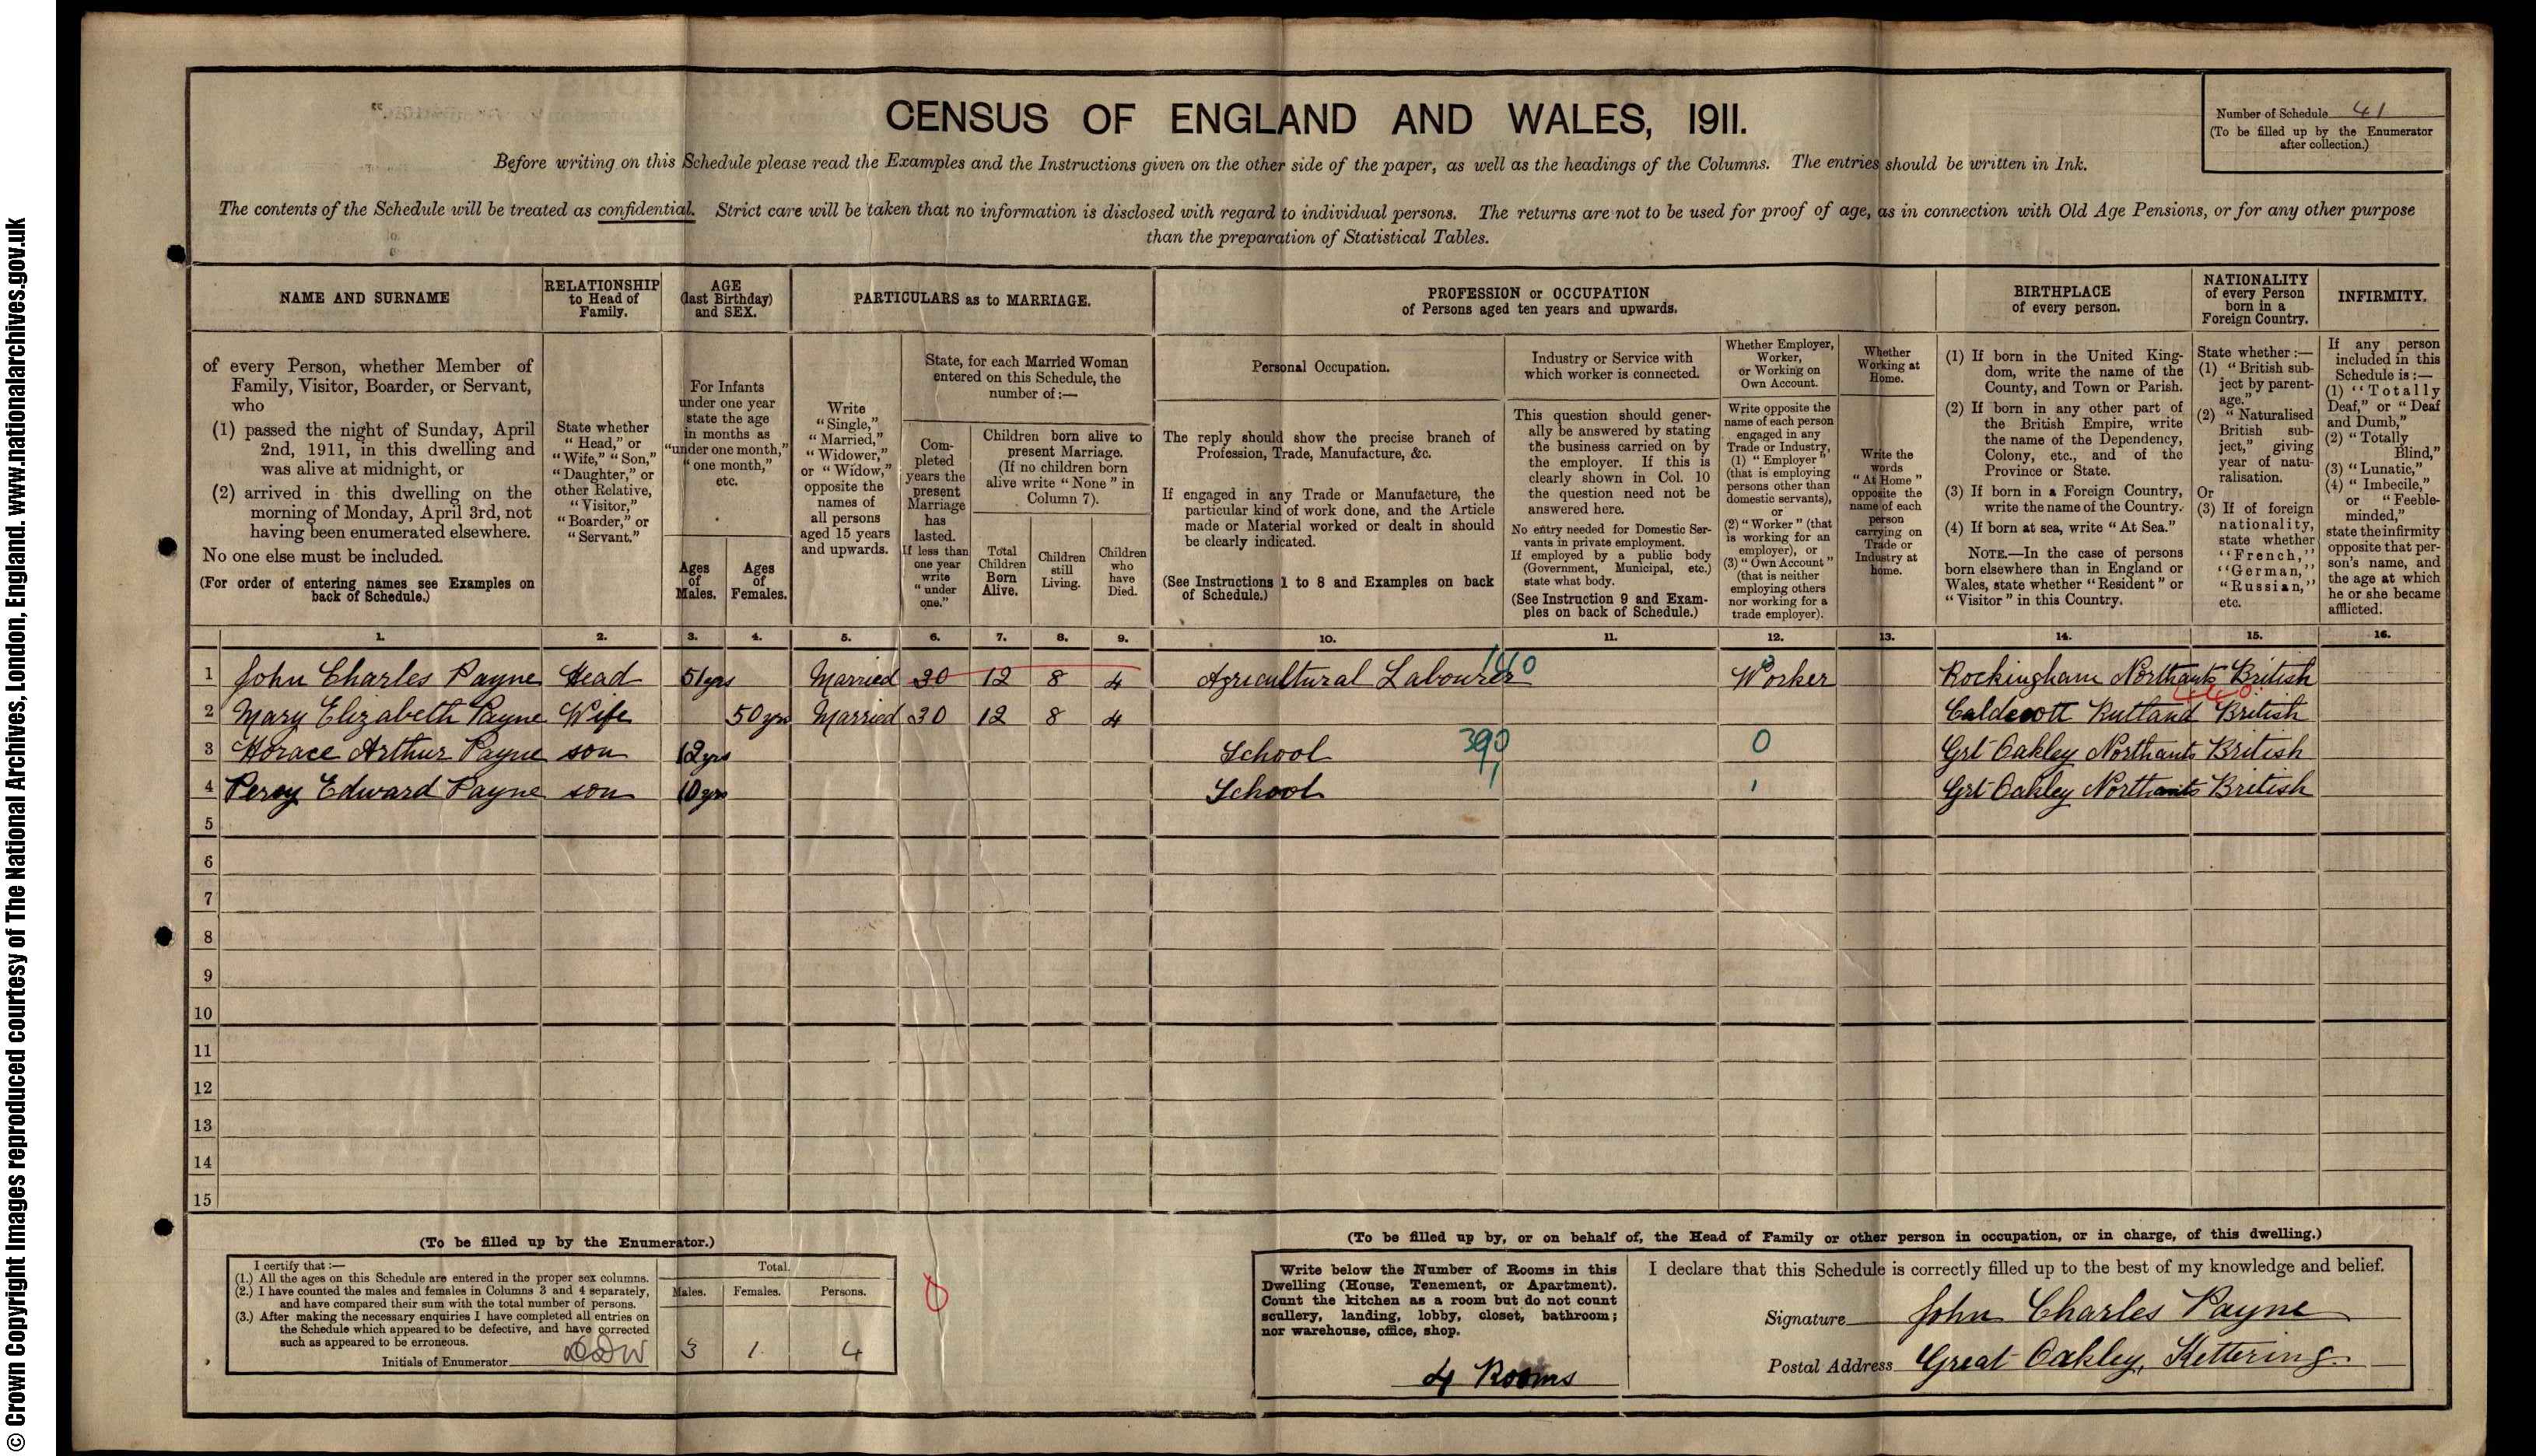 © Crown Copyright Images reproduced courtesy of The National Archives, London, England. www.nationalarchives.gov.uk
CENSUS OF ENGLAND AND WALES, 1911.
Number of Schedule 41
(To be filled up by the Enumerator
after collection.)
Before writing on this Schedule please read the Examples and the Instructions given on the other side of the paper, as well as the headings of the Columns. The entries should be written in Ink.
The contents of the Schedule will be treated as confidential. Strict care will be taken that no information is disclosed with regard to individual persons. The returns are not to be used for proof of age, as in connection with Old Age Pensions, or for any other purpose
than the preparation of Statistical Tables.
NAME AND SURNAME
of every Person, whether Member of
Family, Visitor, Boarder, or Servant,
who
(1) passed the night of Sunday, April
2nd, 1911, in this dwelling and
was alive at midnight, or
(2) arrived in this dwelling on the
morning of Monday, April 3rd, not
having been enumerated elsewhere.
No one else must be included.
(For order of entering names see Examples on
back of Schedule.)
RELATIONSHIP
to Head of
Family.
State whether
"Head," or
"Wife," "Son,"
"Daughter," or
other Relative,
"Visitor,"
"Boarder," or
"Servant."
AGE
(last Birthday)
and SEX.
For Infants
under one year
state the age
in months as
"under one month,"
"one month,"
etc.
Ages
of
Males.
Ages
of
Females.
PARTICULARS as to MARRIAGE.
Write
"Single,"
"Married,"
"Widower,"
or "Widow,"
opposite the
names of
all persons
aged 15 years
and upwards.
State, for each Married Woman
entered on this Schedule, the
number of:—
Com-
pleted
years the
present
Marriage
has
lasted.
If less than
one year
write
"under
one."
Children born alive to
present Marriage.
(If no children born
alive write "None" in
Column 7).
Total
Children
Born
Alive.
Children
still
Living.
Children
who
have
Died.
PROFESSION or OCCUPATION
of Persons aged ten years and upwards.
Personal Occupation.
The reply should show the precise branch of
Profession, Trade, Manufacture, &c.
If engaged in any Trade or Manufacture, the
particular kind of work done, and the Article
made or Material worked or dealt in should
be clearly indicated.
(See Instructions 1 to 8 and Examples on back
of Schedule.)
Industry or Service with
which worker is connected.
This question should gener-
ally be answered by stating
the business carried on by
the employer. If this is
clearly shown in Col. 10
the question need not be
answered here.
No entry needed for Domestic Ser-
vants in private employment.
If employed by a public body
(Government, Municipal, etc.)
state what body.
(See Instruction 9 and Exam-
ples on back of Schedule.)
Whether Employer,
Worker,
or Working on
Own Account.
Write opposite the
name of each person
engaged in any
Trade or Industry,
(1) "Employer"
(that is employing
persons other than
domestic servants),
or
(2) "Worker" (that
is working for an
employer), or
(3) "Own Account"
(that is neither
employing others
nor working for a
trade employer).
Whether
Working at
Home.
Write the
words
"At Home"
opposite the
name of each
person
carrying on
Trade or
Industry at
home.
BIRTHPLACE
of every person.
(1) If born in the United King-
dom, write the name of the
County, and Town or Parish.
(2) If born in any other part of
the British Empire, write
the name of the Dependency,
Colony, etc., and of the
Province or State.
(3) If born in a Foreign Country,
write the name of the Country.
(4) If born at sea, write "At Sea."
NOTE.—In the case of persons
born elsewhere than in England or
Wales, state whether "Resident" or
"Visitor" in this Country.
NATIONALITY
of every Person
born in a
Foreign Country.
State whether:—
(1) "British sub-
ject by parent-
age."
(2) "Naturalised
British sub-
ject," giving
year of natu-
ralisation.
Or
(3) If of foreign
nationality,
state whether
"French,"
"German,"
"Russian,"
etc.
INFIRMITY.
If any person
included in this
Schedule is:—
(1) "Totally
Deaf," or "Deaf
and Dumb,"
(2) "Totally
Blind,"
(3) "Lunatic,"
(4) "Imbecile,"
or "Feeble-
minded,"
state the infirmity
opposite that per-
son's name, and
the age at which
he or she became
afflicted.
1. 2. 3. 4. 5. 6. 7. 8. 9. 10. 11. 12. 13. 14. 15. 16.
1 John Charles Payne Head 51 yrs Married 30 12 8 4 Agricultural Labourer Worker Rockingham Northants British
2 Mary Elizabeth Payne Wife 50 yrs Married 30 12 8 4 Caldecott Rutland British
3 Horace Arthur Payne son 12 yrs School 390 0 Grt Oakley Northants British
4 Percy Edward Payne son 10 yrs School Grt Oakley Northants British
5
6
7
8
9
10
11
12
13
14
15
(To be filled up by the Enumerator.)
I certify that:—
(1.) All the ages on this Schedule are entered in the proper sex columns.
(2.) I have counted the males and females in Columns 3 and 4 separately,
and have compared their sum with the total number of persons.
(3.) After making the necessary enquiries I have completed all entries on
the Schedule which appeared to be defective, and have corrected
such as appeared to be erroneous.
Initials of Enumerator
Total.
Males. Females. Persons.
3 1 4
(To be filled up by, or on behalf of, the Head of Family or other person in occupation, or in charge, of this dwelling.)
Write below the Number of Rooms in this
Dwelling (House, Tenement, or Apartment).
Count the kitchen as a room but do not count
scullery, landing, lobby, closet, bathroom;
nor warehouse, office, shop.
4 Rooms
I declare that this Schedule is correctly filled up to the best of my knowledge and belief.
Signature John Charles Payne
Postal Address Great Oakley, Kettering.